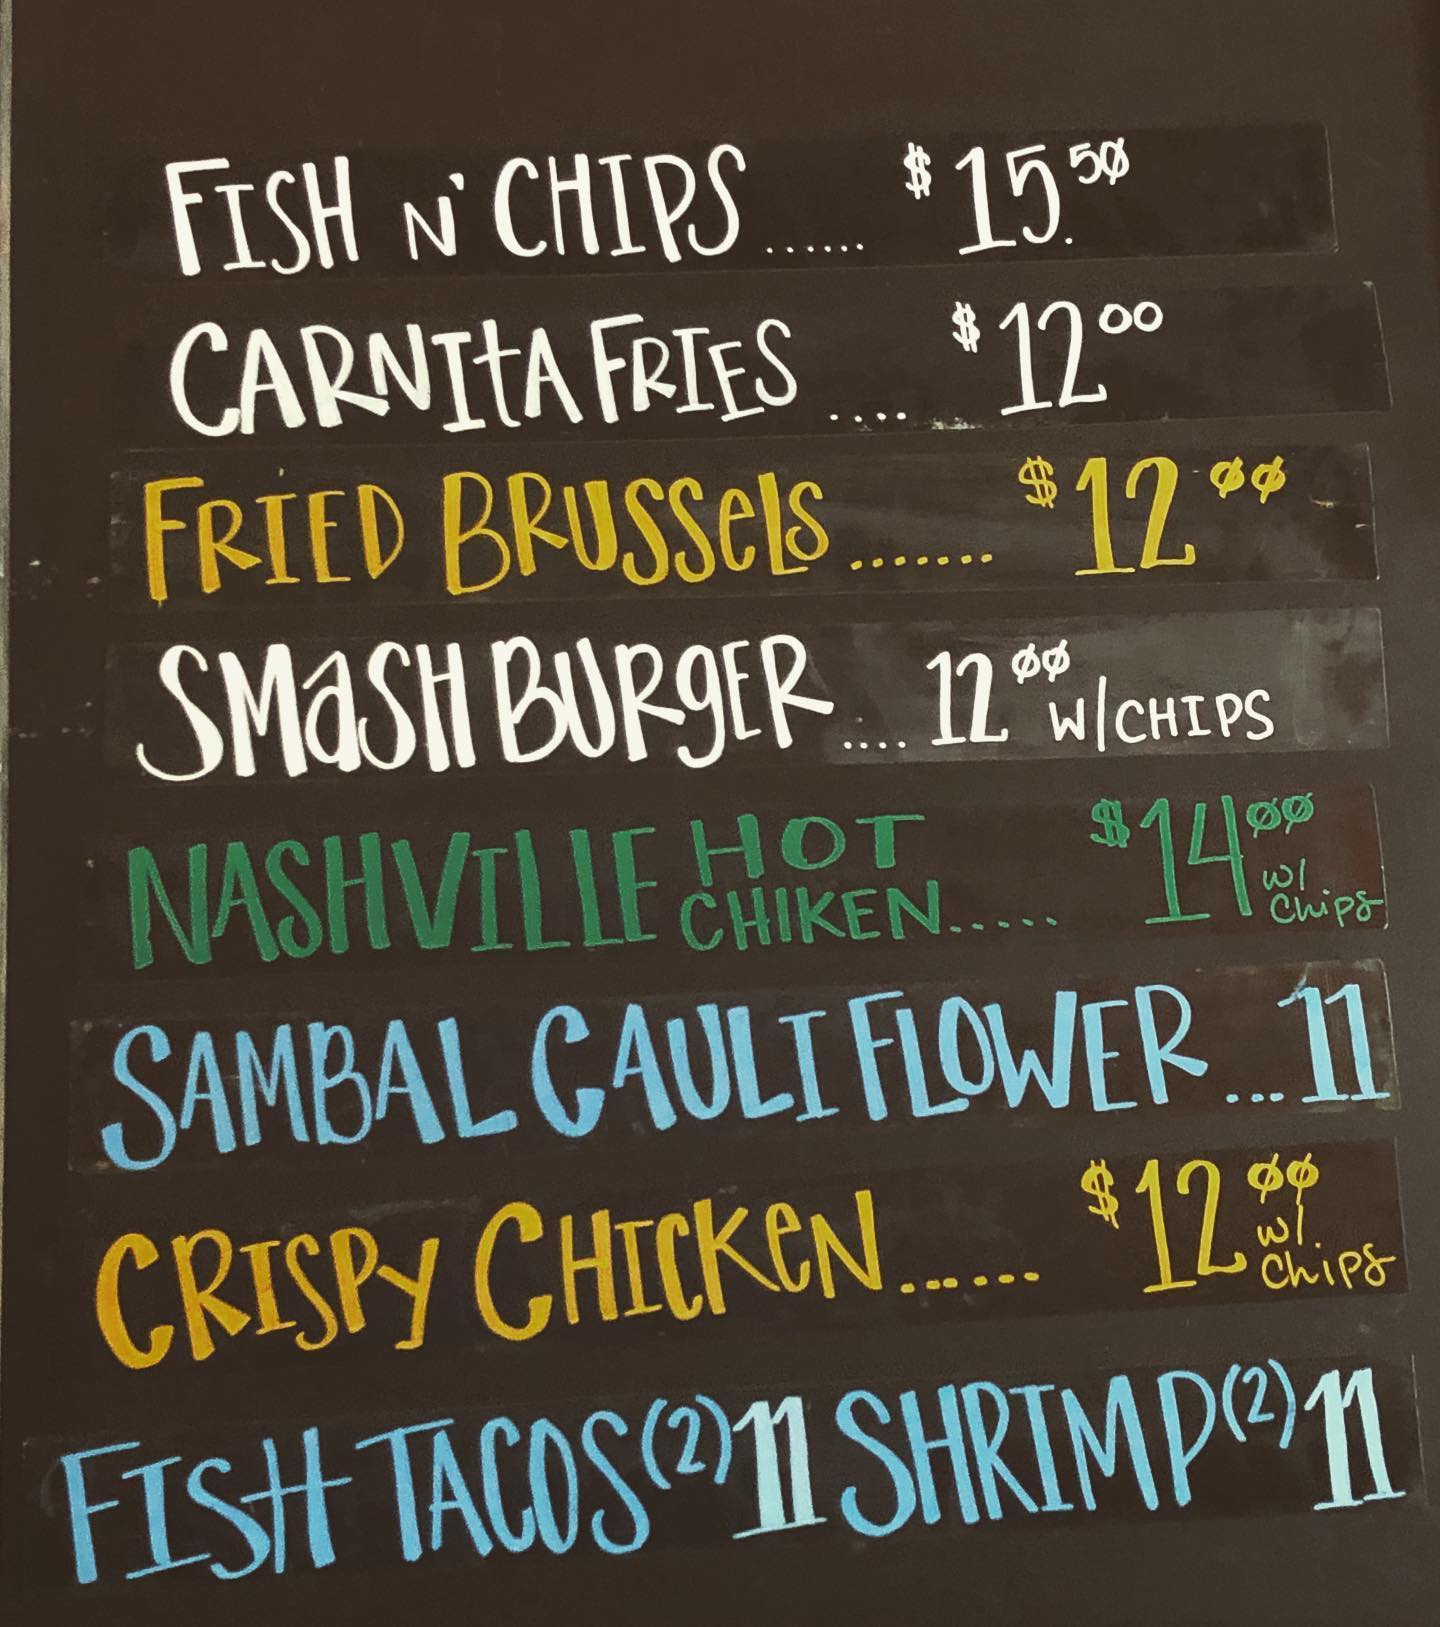 FISH N' CHIPS ...... $15.50
CARNITA FRIES .... $12 00
FRIED BRUSSELS ....... $12 00
SMASH BURGER .... 12 00 W/CHIPS
NASHVILLE HOT CHIKEN ..... $14 00 w/ Chips
SAMBAL CAULIFLOWER ... 11
CRISPY CHICKEN ...... $12 00 w/ Chips
FISH TACOS (2) 11 SHRIMP (2) 11